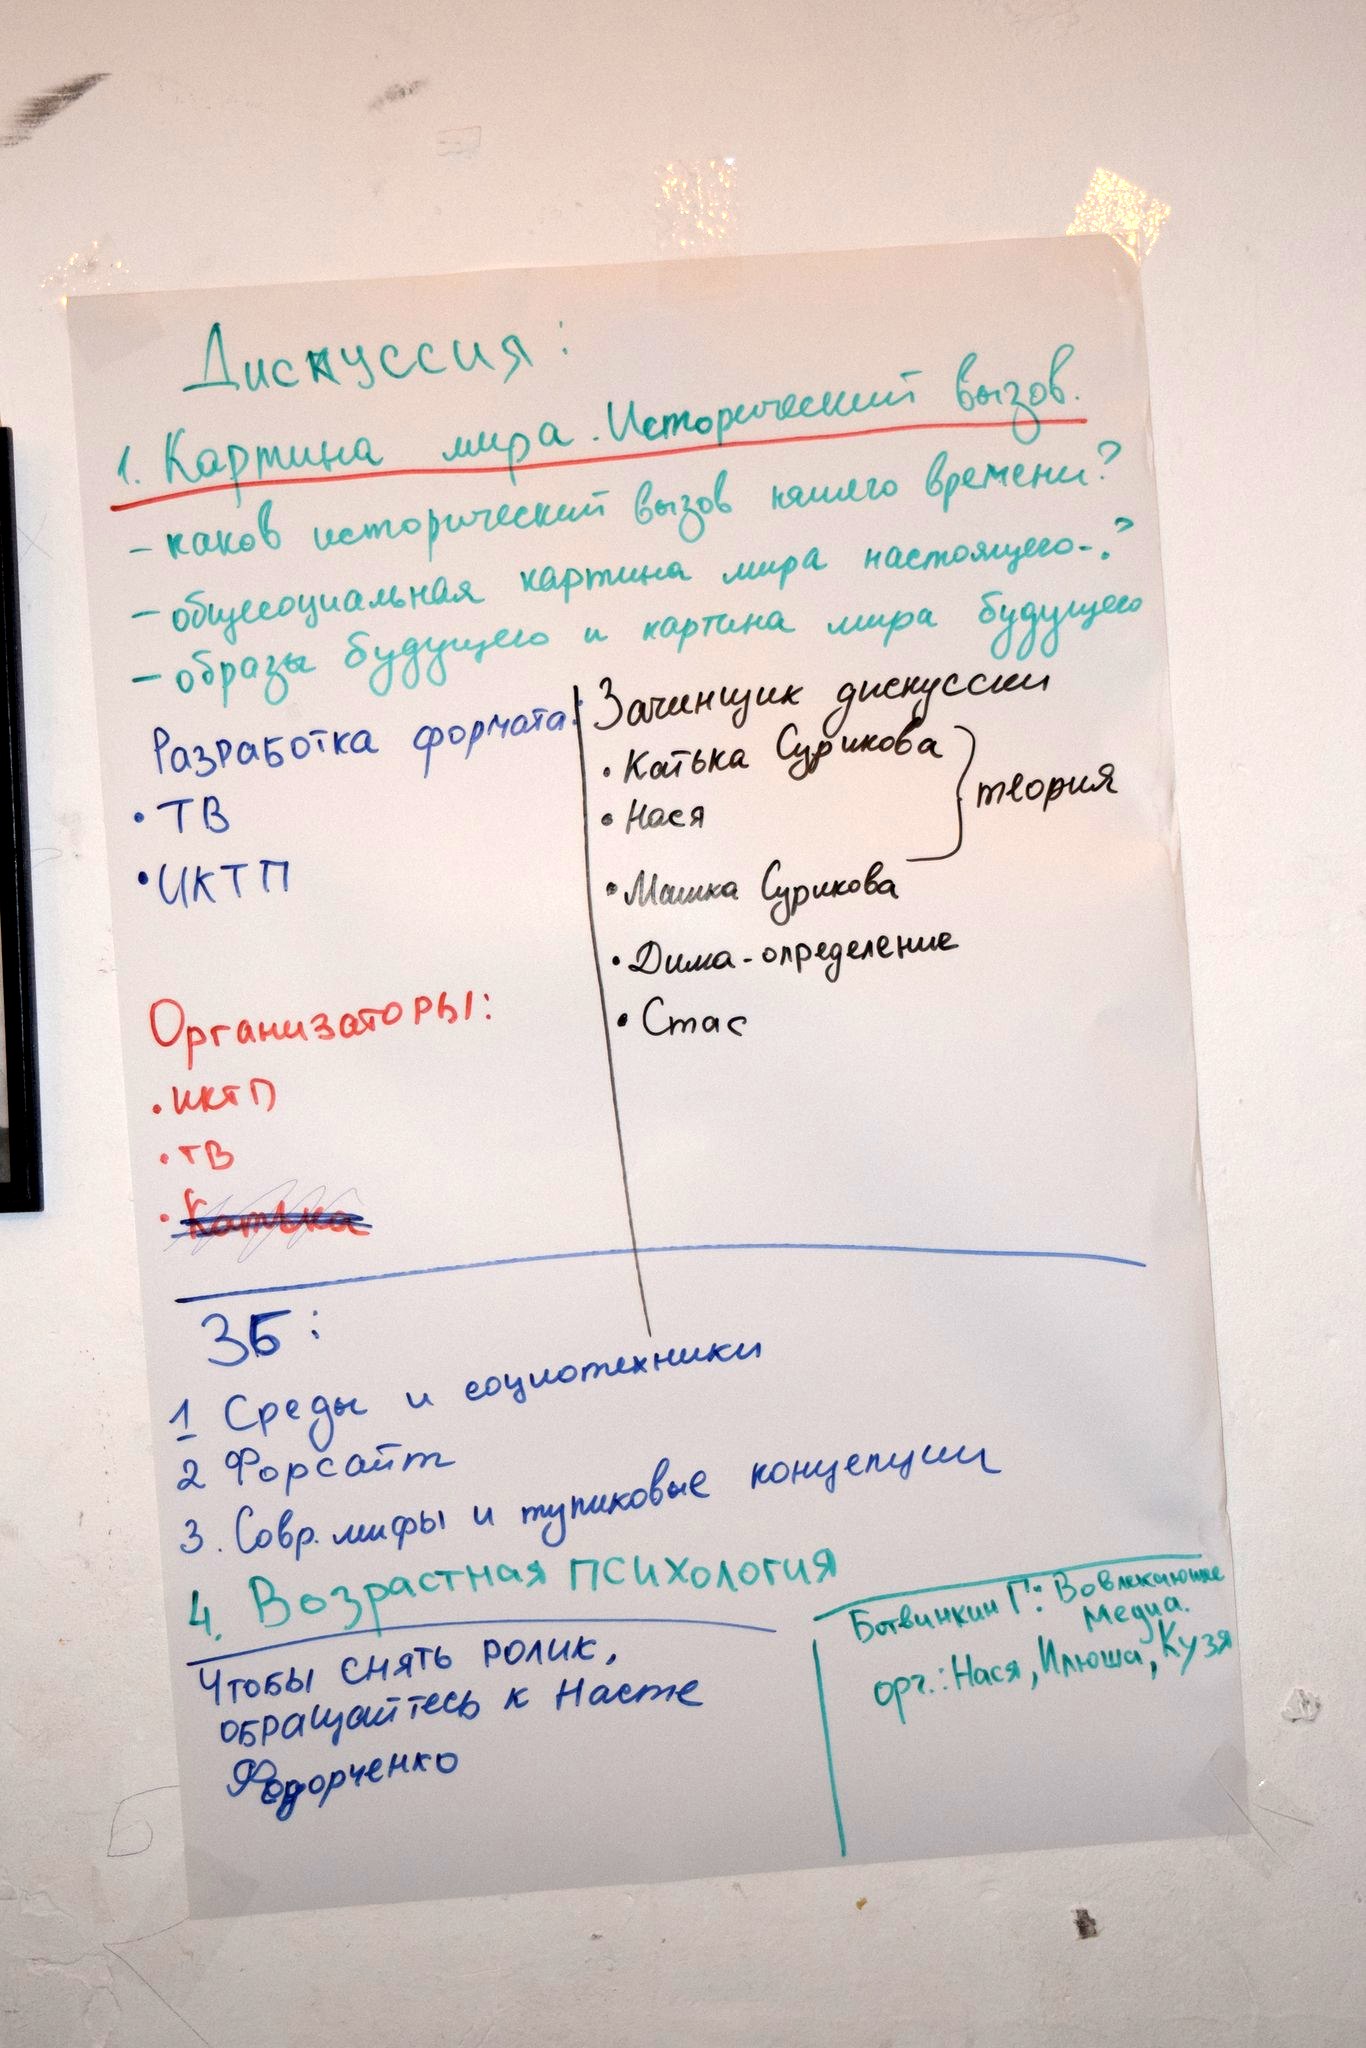 Дискуссия:
1. Картина мира. Исторический вызов.
- каков исторический вызов нашего времени?
- общесоциальная картина мира настоящего-?
- образы будущего и картина мира будущего
Разработка формата:
• ТВ
• ИКТП
Организаторы:
• ИКТП
• ТВ
• Катька
Зачинщик дискуссии
• Катька Сурикова
• Нася
теория
• Машка Сурикова
• Дима - определение
• Стас
ЗБ:
1 Среды и социотехники
2 Форсайт
3. Совр. мифы и тупиковые концепции
4. Возрастная психология
Чтобы снять ролик,
обращайтесь к Насте
Федорченко
Ботвинкин Г.: Вовлекающие
Медиа.
орг.: Нася, Илюша, Кузя